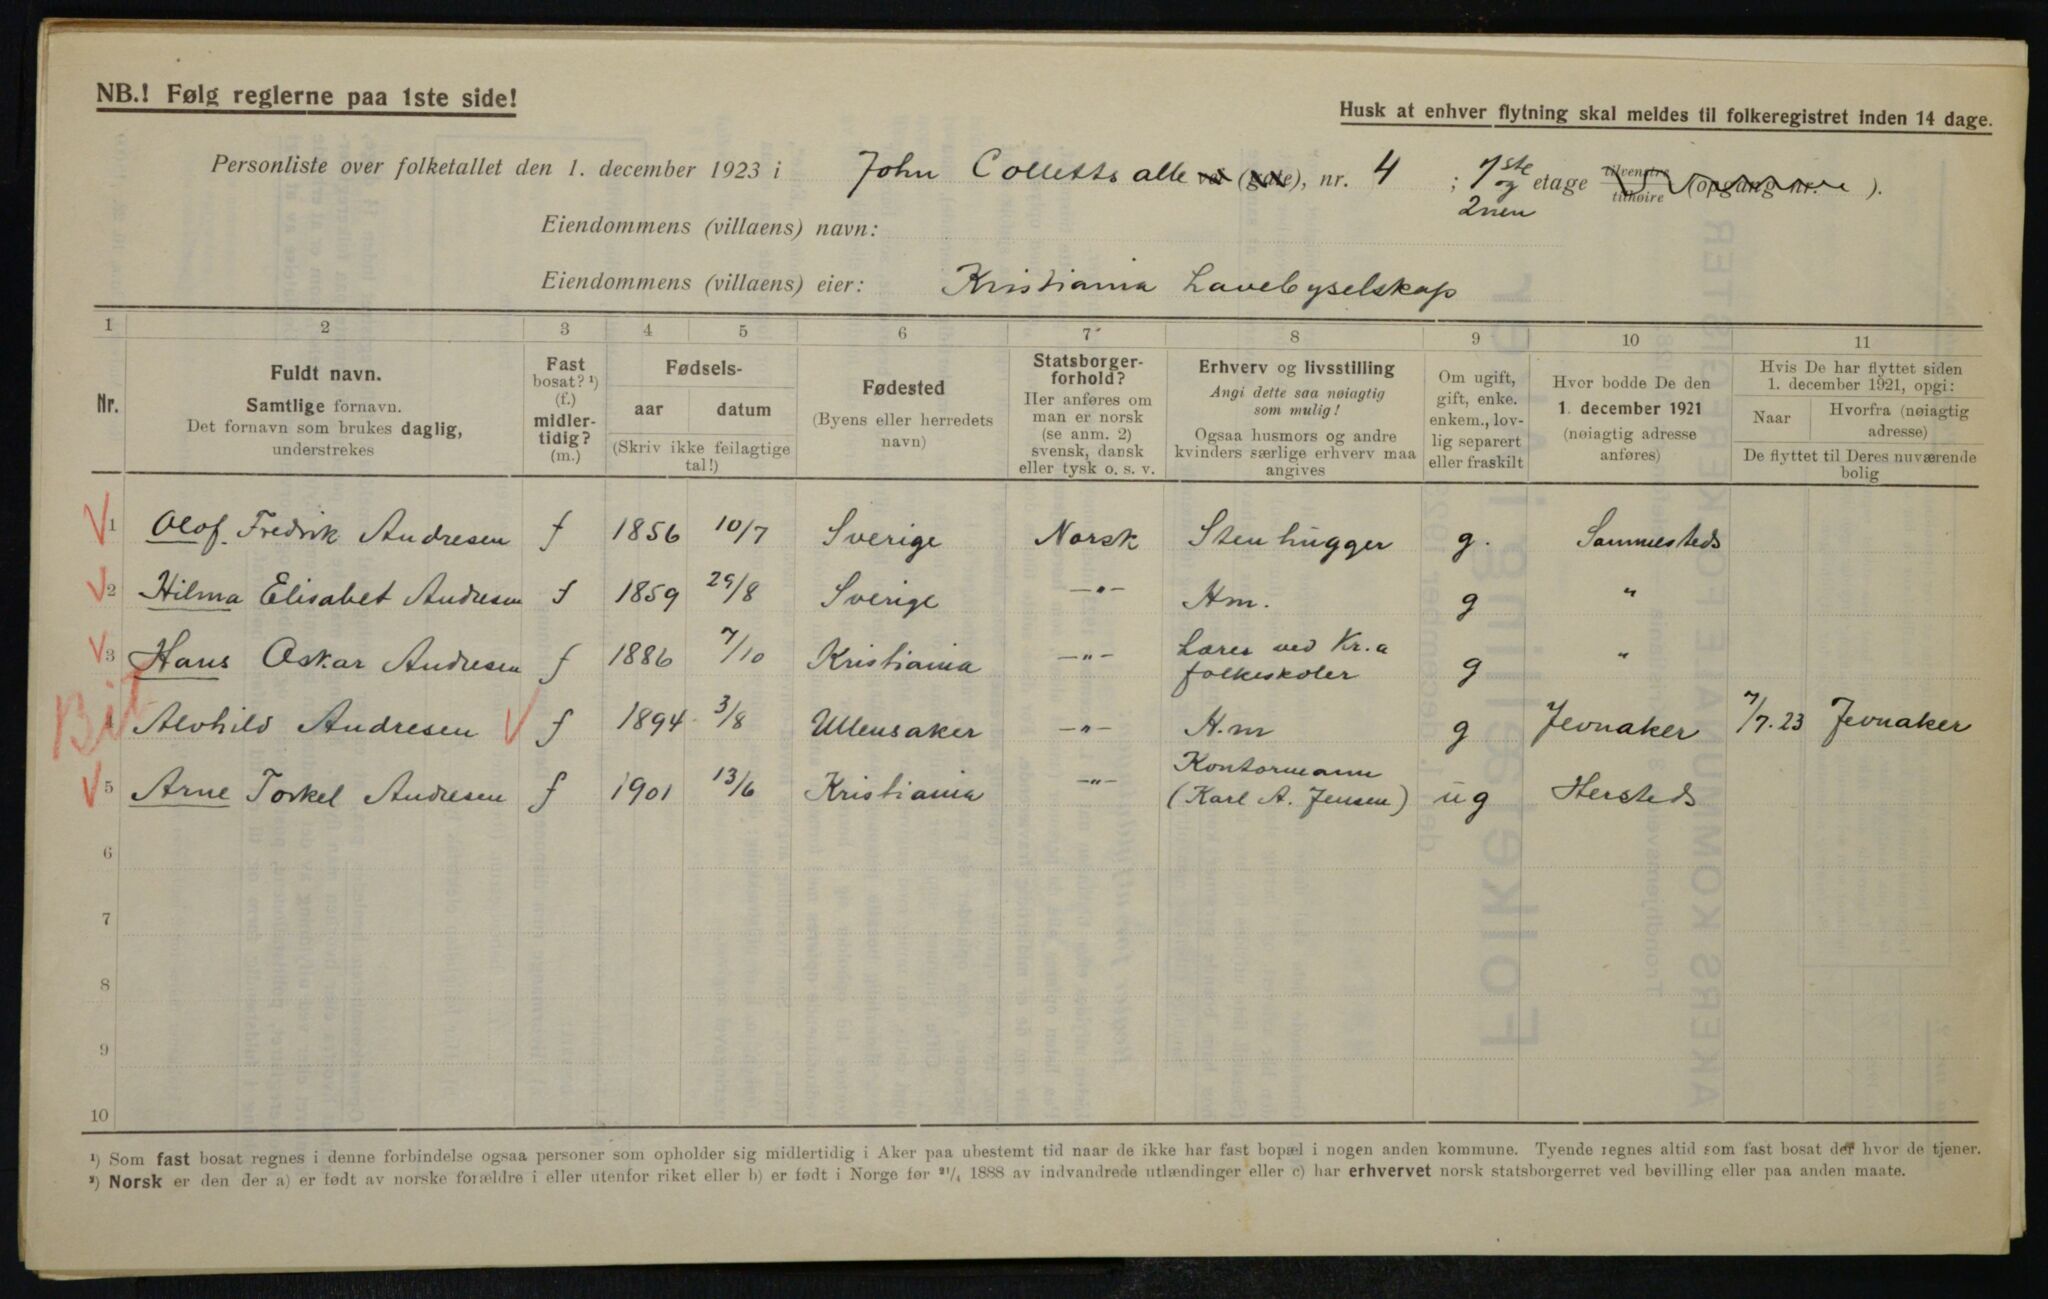 NB.! Følg reglerne paa 1ste side!
Husk at enhver flytning skal meldes til folkeregistret inden 14 dage.
Personliste over folketallet den 1. december 1923 i John Colletts alle vei (gate), nr. 4 ; 1ste og 2nen etage tilvenstre tilhøire (opgang nr. ).
Eiendommens (villaens) navn:
Eiendommens (villaens) eier: Kristiania Havebyselskap
1 2 3 4 5 6 7 8 9 10 11
Nr.
Fuldt navn.
Samtlige fornavn.
Det fornavn som brukes daglig,
understrekes
Fast
bosat? ¹)
(f.)
midler-
tidig?
(m.)
Fødsels-
aar datum
(Skriv ikke feilagtige
tal!)
Fødested
(Byens eller herredets
navn)
Statsborger-
forhold?
Her anføres om
man er norsk
(se anm. 2)
svensk, dansk
eller tysk o. s. v.
Erhverv og livsstilling
Angi dette saa nøiagtig
som mulig!
Ogsaa husmors og andre
kvinders særlige erhverv maa
angives
Om ugift,
gift, enke.
enkem., lov-
lig separert
eller fraskilt
Hvor bodde De den
1. december 1921
(nøiagtig adresse
anføres)
Hvis De har flyttet siden
1. december 1921, opgi:
Naar Hvorfra (nøiagtig
adresse)
De flyttet til Deres nuværende
bolig
1 Olof Fredrik Andresen f 1856 10/7 Sverige Norsk Stenhugger g. Sammesteds
2 Hilma Elisabet Andresen f 1859 29/8 Sverige -"- Hm. g "
3 Hans Oskar Andresen f 1886 7/10 Kristiania -"- Lærer ved Kr.a folkeskoler g "
4 Alvhild Andresen f 1894 3/8 Ullensaker -"- H.m g Jevnaker 7/7.23 Jevnaker
5 Arne Torkel Andresen f 1901 13/6 Kristiania -"- Kontormann (Karl A. Jensen) ug Hersteds
Bit
6
7
8
9
10
¹) Som fast bosat regnes i denne forbindelse ogsaa personer som opholder sig midlertidig i Aker paa ubestemt tid naar de ikke har fast bopæl i nogen anden kommune. Tyende regnes altid som fast bosat der hvor de tjener.
²) Norsk er den der a) er født av norske forældre i eller utenfor riket eller b) er født i Norge før ²¹/₄ 1888 av indvandrede utlændinger eller c) har erhvervet norsk statsborgerret ved bevilling eller paa anden maate.